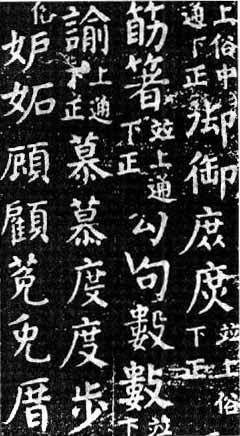 上俗中通下正御御庻庶並上俗下正
筯箸並上通下正勾句數數並下
諭上通下正慕慕度度步
俗妒妬頋顧莬兔厝